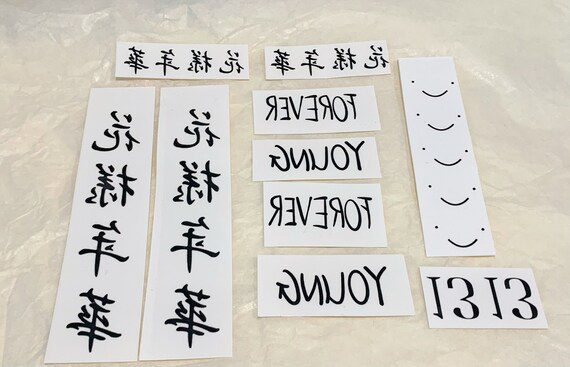 花樣年華
花樣年華
花樣年華
花樣年華
FOREVER
YOUNG
FOREVER
YOUNG
1313